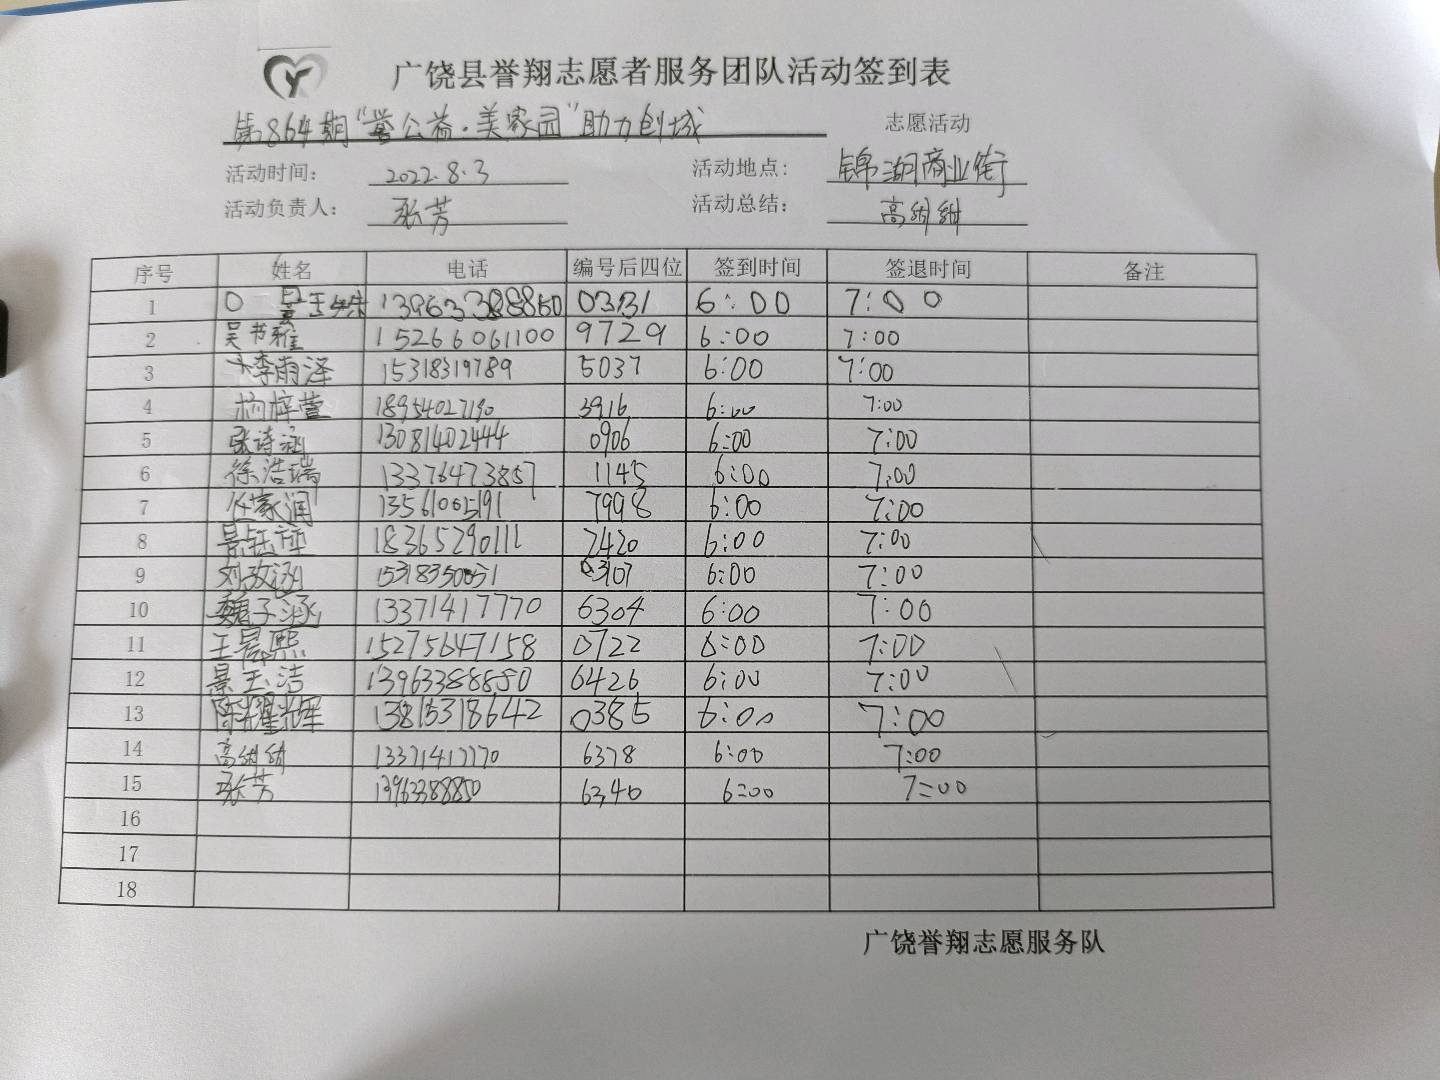 广饶县誉翔志愿者服务团队活动签到表
第864期“誉公益·美家园”助力创城 志愿活动
活动时间: 2022.8.3 活动地点: 锦湖商业街
活动负责人: 张芳 活动总结: 高娟娟
序号 姓名 电话 编号后四位 签到时间 签退时间 备注
1 景玉姝 13963388850 0331 6:00 7:00
2 吴书雅 15266061100 9729 6:00 7:00
3 李雨泽 15318319789 5037 6:00 7:00
4 杨梓萱 18954027190 3916 6:00 7:00
5 张诗涵 13081402444 0906 6:00 7:00
6 徐浩瑞 13376473857 1145 6:00 7:00
7 任家润 13561005191 7998 6:00 7:00
8 景钰 18365290111 2420 6:00 7:00
9 刘孜涵 15318350051 0307 6:00 7:00
10 魏子涵 13371417770 6304 6:00 7:00
11 王晨熙 15275647158 0722 6:00 7:00
12 景玉洁 13963388850 6426 6:00 7:00
13 陈耀辉 13815318642 0385 6:00 7:00
14 高娟娟 13371417770 6378 6:00 7:00
15 张芳 13963388850 6340 6:00 7:00
16
17
18
广饶誉翔志愿服务队